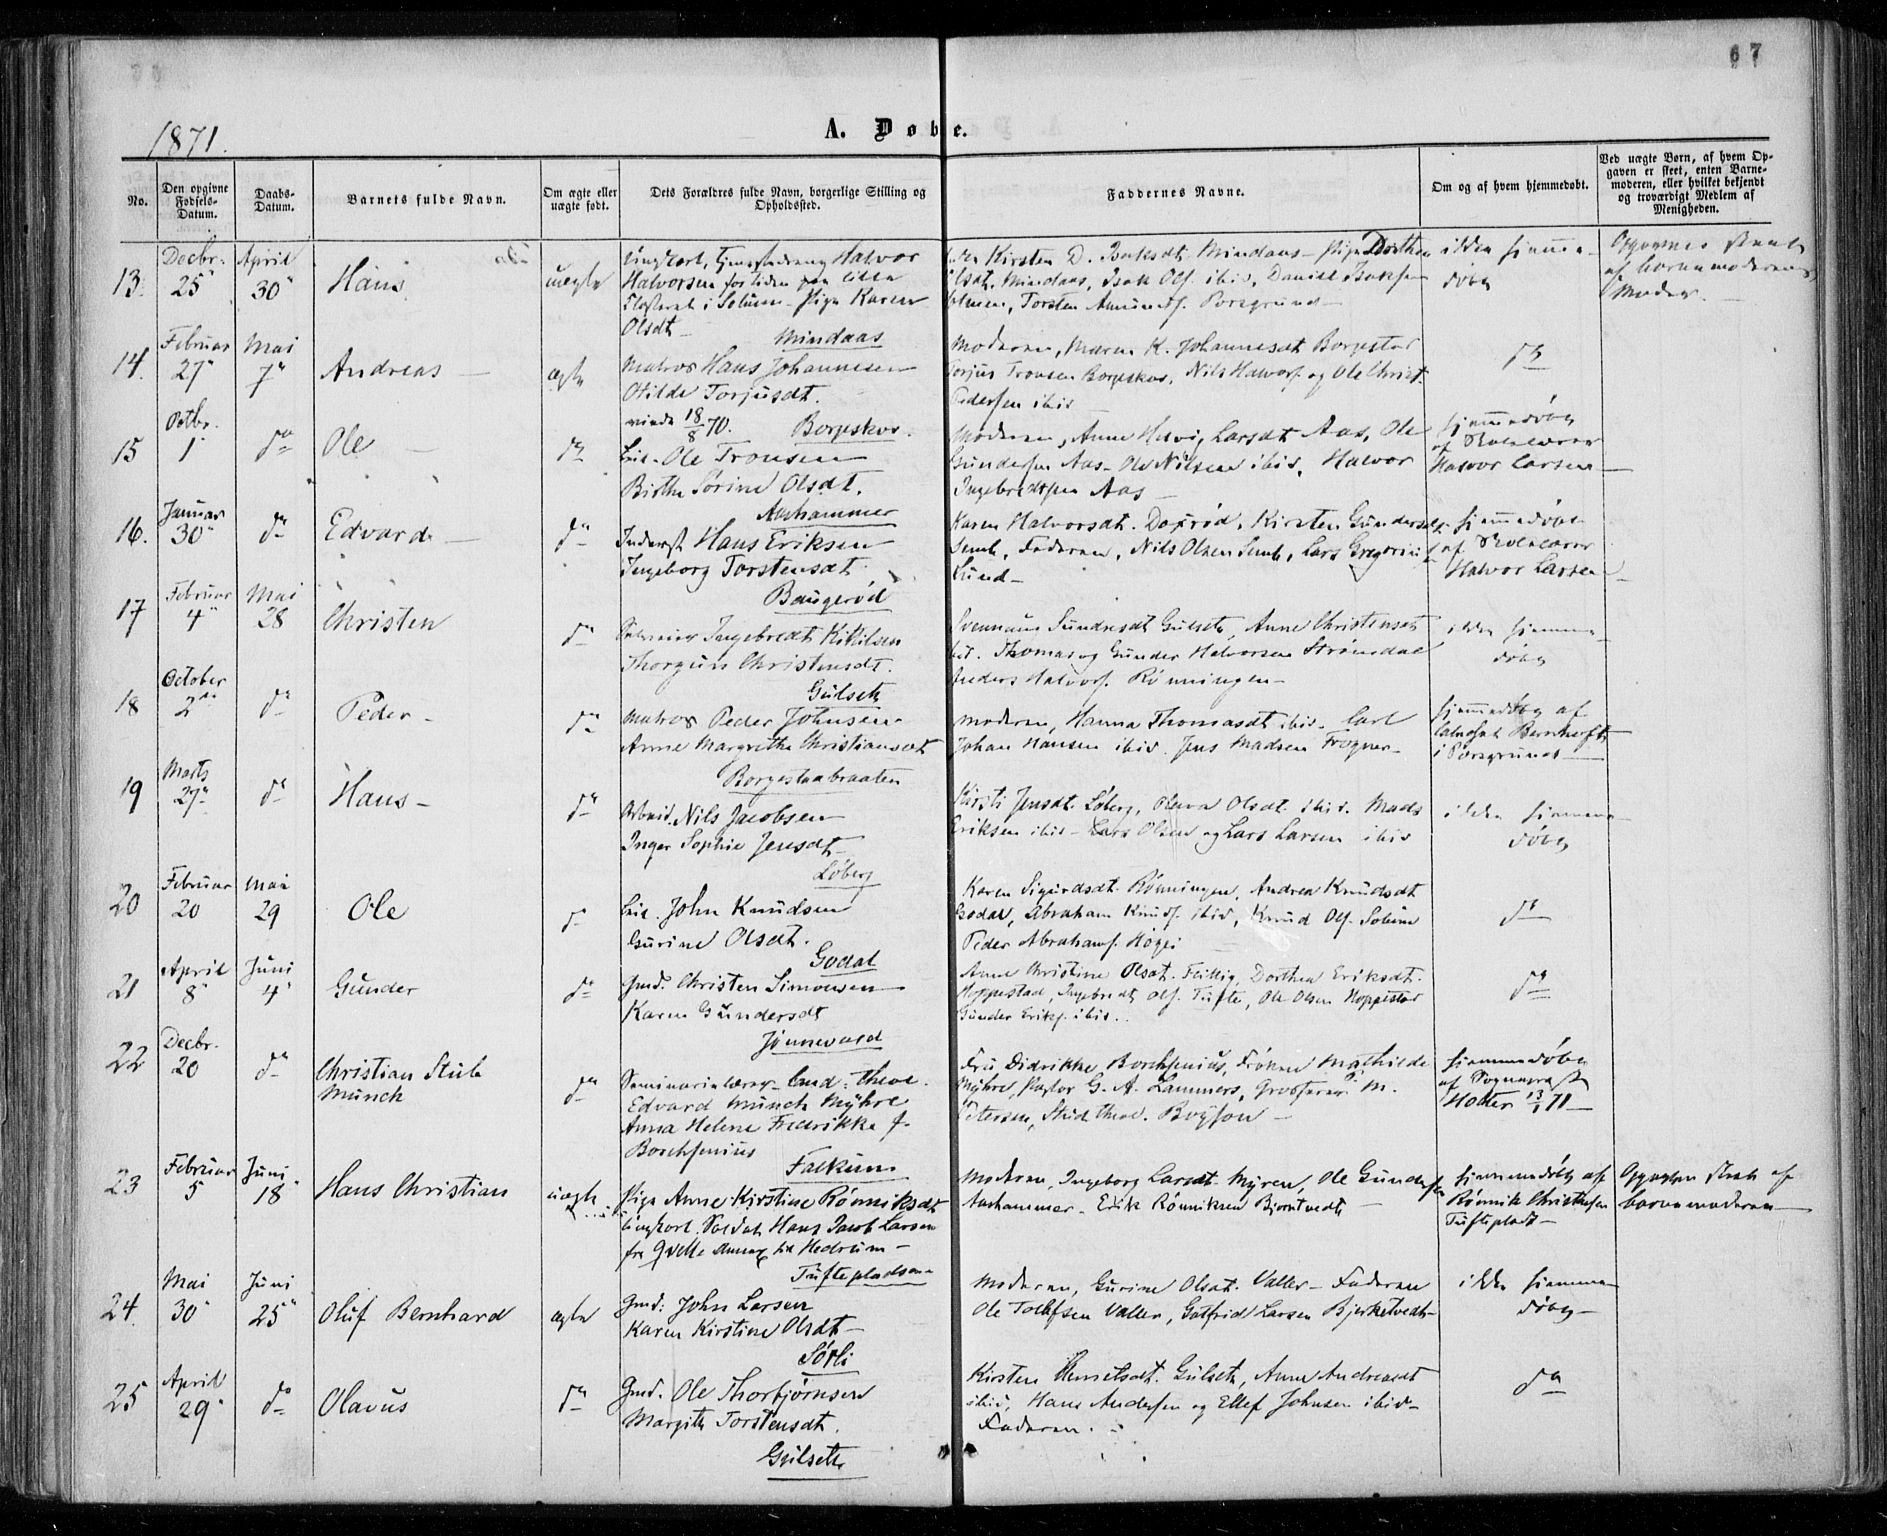 67
1871.
A. Døbte.
No.
Den opgivne Fødsels-Datum.
Daabs-Datum.
Barnets fulde Navn.
Om ægte eller uægte født.
Dets Forældres fulde Navn, borgerlige Stilling og Opholdssted.
Faddernes Navne.
Om og af hvem hjemmedøbt.
Ved uægte Børn, af hvem Opgaven er skeet, enten Barnemoderen, eller hvilket bekjendt og troværdigt Medlem af Menigheden.
13. Decbr. 25" April 30" Hans uægte
Ungkarl, Halvor
Halvorsen for tiden paa lille
i Solum - Pige Karen
Olsdt -
Mindaas
Kirsten D. Isaksdt. Mindaas - Pige Dorthea
Olsdt. Mindaas, Isak Ols. ibid, Daniel Isaksen
Torsten Amunds. Porsgrund -
ikke hjemme-
døbt
Opgaven skeet
af barnemoderens
Moder.
14. Februar 27" Mai 7" Andreas - ægte
Matros Hans Johannesen
Otilde Torjusdt.
viede 18/8 70. Borgeskov.
Moderen, Maren K. Johannesdt Borgestad
Torjus Tronsen Borgeskov, Nils Halvors. og Ole Christ.
Pedersen ibid
do
15 Octbr. 1 do Ole - do
Leil. Ole Tronsen
Birthe Sørine Olsdt.
Aashammer
Moderen, Anne Larsdt Aas, Ole
Gundersen Aas - Ole Nilsen ibid, Halvor
Ingebredtsen Aas -
hjemmedøbt
af Skolelærer
Halvor Larsen -
16. Januar 30" do Edvard - do
Inderst Hans Eriksen
Ingeborg Torstensdt.
Baugerød
Karen Halvorsdt. Kirsten Gundersdt.
Semb, Faderen, Nils Olsen Semb, Lars Gregorius
Lund -
hjemmedøbt
af Skolelærer
Halvor Larsen -
17 Februar 4" Mai 28 Christen do
Ingebredt Kittilsen
Thorgun Christensdt.
Gulseth
Sundresdt Gulseth, Anne Christensdt
ibid. Thomas og Gunder Halvorsen Strømdal
Anders Halvors. Rønningen -
ikke hjemme-
døbt
18 October 2den do Peder - do
Matros Peder Johnsen
Anne Margrethe Christiansdt
Borgestadbraaten
Moderen, Hanna Thomasdt ibid - Carl
Johan Hansen ibid. Jens Madsen Frogner -
hjemmedøbt af
i Porsgrund -
19 Marts 27" do Hans - do
Arbeid. Nils Jacobsen
Inger Sophie Jensdt -
Løberg
Kirsti Jensdt. Løberg, Olava Olsdt. ibid. Mads
Eriksen ibid - Lars Olsen og Lars Larsen ibid
ikke hjemme-
døbt
20 Februar 20 Mai 29 Ole do
Leil. John Knudsen
Gurine Olsdt.
Godal
Karen Sigurdsdt. Rønningen, Andrea Knudsdt
Godal, Abraham Knuds. ibid, Knud Ols. Solum
Peder Abrahams. Høgei
do
21 April 8" Juni 4" Gunder do
Gmd. Christen Simonsen
Karen Gundersdt
Jønnevald
Anne Christine Olsdt. Flittig, Dorthea Eriksdt.
Hoppestad, Ingebredt Ols. Tufte, Ole Olsen Hoppestad
Gunder Eriks. ibid.
do
22 Decbr. 20 do Christian Stub
Munch do
Seminarielærer - Cand. Theol.
Edvard Munch Myhre
Anna Helene Fredrikke f.
Borchsenius
Falkum
Fru Didrikke Borchsenius, Frøken Mathilde
Myhre, Pastor G. A. Lammers, Grosserer P. M.
Petersen, Stud theol. Boyson -
hjemmedøbt
af Sognepræst
13/1 71 -
23 Februar 5 Juni 18 Hans Christian uægte
Pige Anne Kirstine Rønniksdt
Ungkarl. Soldat Hans Jacob Larsen
fra til Hedrum -
Tuftepladsen
Moderen, Ingeborg Larsdt. Myren, Ole Gundersen
Aashammer - Erik Rønniksen Bjørntvedt -
hjemmedøbt af
Rønnik Christensen
Tufteplads -
Opgaven skeet af
barnemoderen
24. Mai 30" Juni 25" Oluf Bernhard ægte
Gmd. John Larsen
Karen Kirstine Olsdt -
Sørli
Moderen, Gurine Olsdt. Valler - Faderen
Ole Tollefsen Valler, Gotfrid Larsen Bjerketvedt -
ikke hjemme-
døbt -
25 April 29" do Olavus do
Gmd. Ole Thorbjørnsen
Margith Torstensdt.
Gulseth
Kirsten Gulseth, Anne Andreasdt
ibid, Hans Andersen og Ellef Johnsen ibid -
Faderen.
do